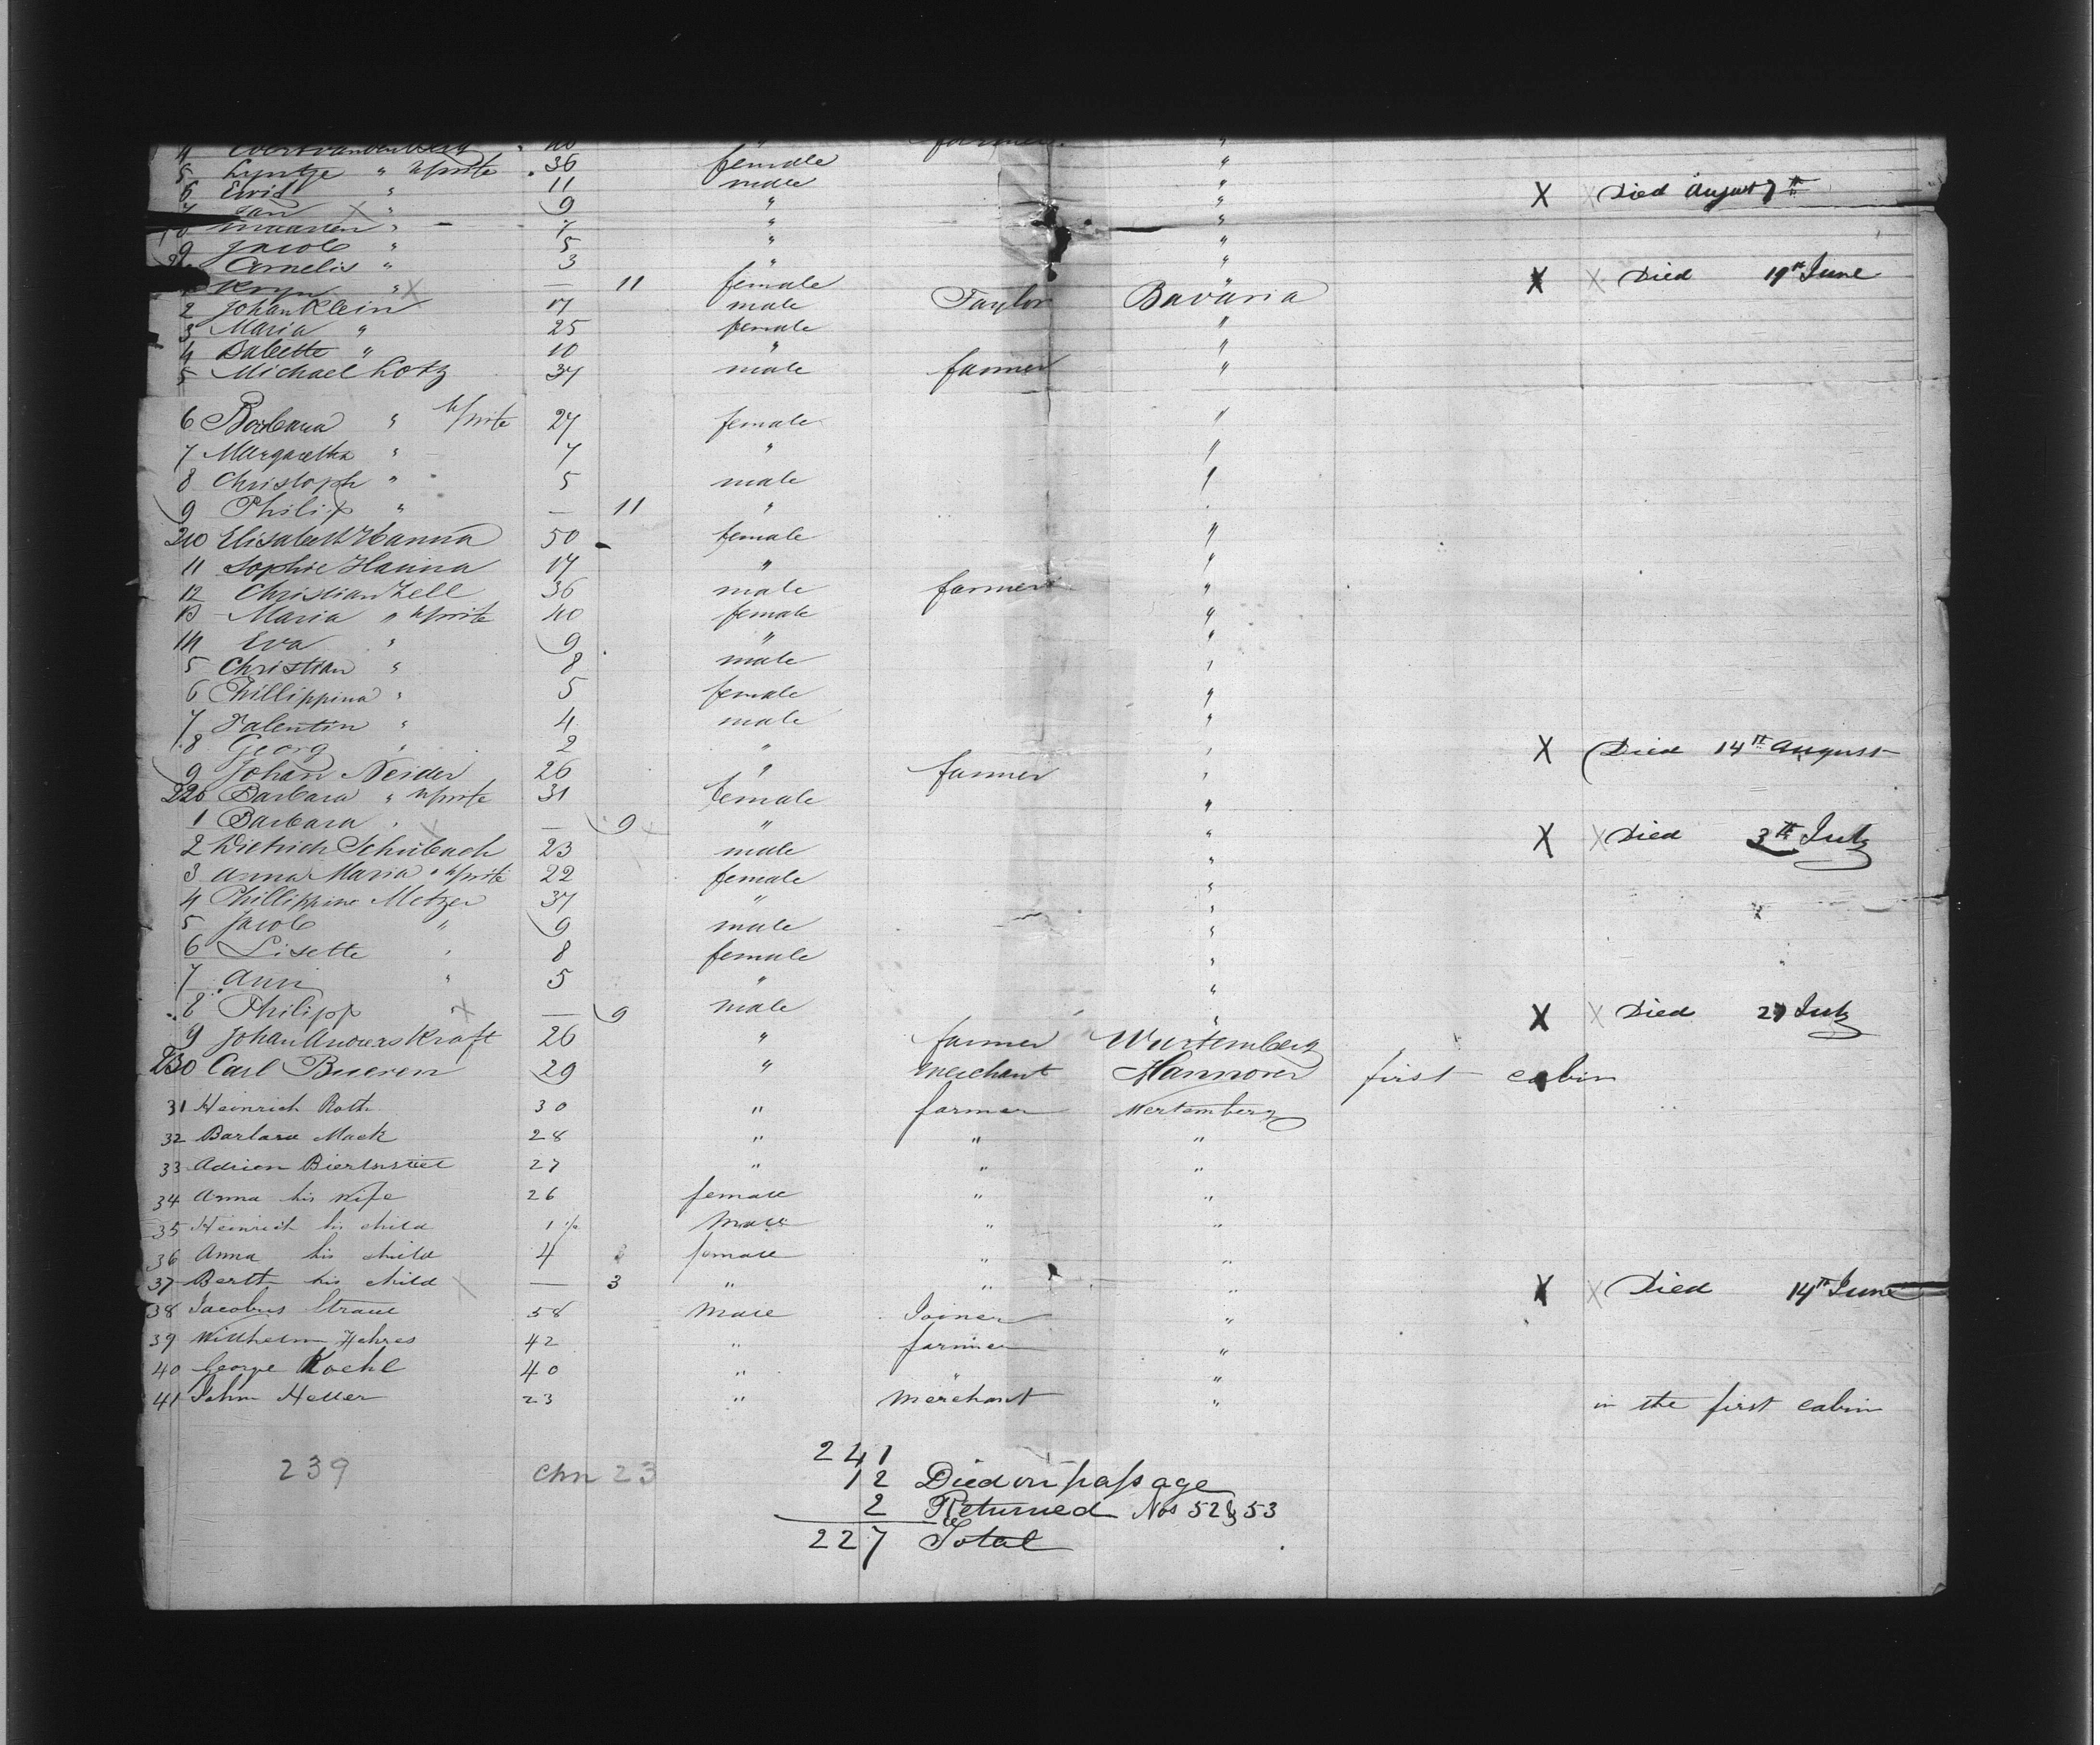 4 Evert vandenberg " 40 " farmer "
5 Lyntje " Wife 36 female "
6 Evid " 11 male "
7 Jan " 9 " " X X Died August 7th
8 Maarten " 7 " "
9 Jacob " 5 " "
Cornelis " 3 " "
Kryn " — 11 female " X X Died 19th June
2 Johan Klein 17 male Taylor Bavaria
3 Maria " 25 female "
4 Babette " 10 " "
5 Michael Lotz 37 male farmer "
6 Barbara " Wife 27 female "
7 Margaretha " 7 " "
8 Christoph " 5 male "
9 Philip " — 11 "
210 Elisabeth Hanna 50 female "
11 Sophie Hanna 17 " "
12 Christian Zell 36 male farmer "
13 Maria " Wife 40 female "
14 Eva " 9 " "
5 Christian " 8 male "
6 Phillippina " 5 female "
7 Valentin " 4 male "
8 Georg " 2 " " X Died 14th August
9 Johan Neider 26 " farmer "
220 Barbara " Wife 31 female "
1 Barbara " — 9 " " X X Died 3th July
2 Dietrich Schubach 23 male "
3 Anna Maria " Wife 22 female "
4 Phillippine Metzer 37 " "
5 Jacob " 9 male "
6 Lisette " 8 female "
7 Ann " 5 " "
8 Philipp " — 9 male " X X Died 27 July
9 Johan Anders Kraft 26 " farmer Wurtemberg
230 Carl Bueren 29 " merchant Hannover first cabin
31 Heinrich Roth 30 " farmer Wertemberg
32 Barbara Mack 28 " " "
33 Adrian 27 " " "
34 Anna his wife 26 female " "
35 Heinrich his child 1 male " "
36 Anna his child 4 female " "
37 Berth his child — 3 " " " X X Died 14th June
38 Jacobus 58 male Joiner "
39 Willhelm Hehres 42 " farmer "
40 George Koehl 40 " " "
41 John Heller 23 " merchant " in the first cabin
241
239 chn 23 12 Died on passage
2 Returned Nos 52 & 53
227 Total